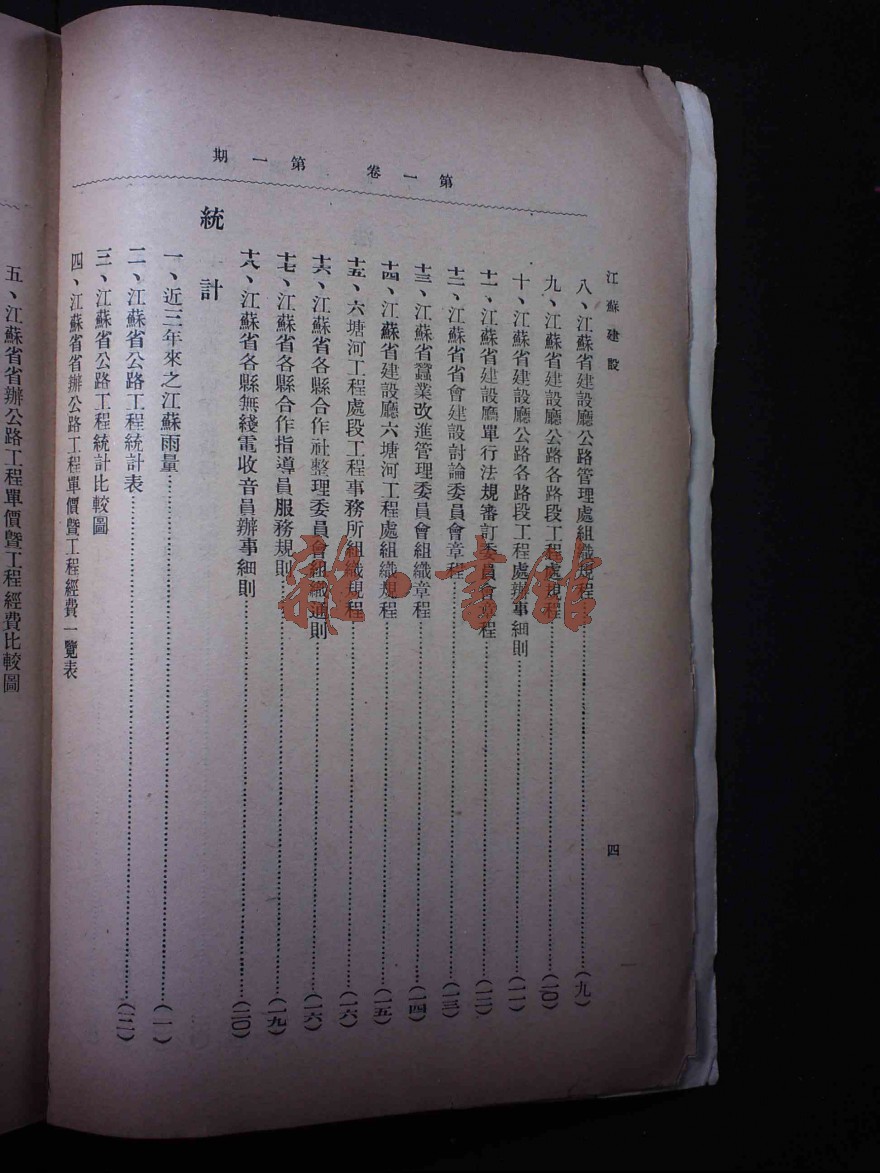 第一卷　第一期
江蘇建設
四
八、江蘇省建設廳公路管理處組織規程……(九)
九、江蘇省建設廳公路各路段工程處規程……(一〇)
十、江蘇省建設廳公路各路段工程處辦事細則……(一一)
十一、江蘇省建設廳單行法規審訂委員會章程……(一二)
十二、江蘇省省會建設討論委員會章程……(一三)
十三、江蘇省蠶業改進管理委員會組織章程……(一四)
十四、江蘇省建設廳六塘河工程處組織規程……(一五)
十五、六塘河工程處段工程事務所組織規程……(一六)
十六、江蘇省各縣合作社整理委員會組織通則……(一六)
十七、江蘇省各縣合作指導員服務規則……(一九)
十八、江蘇省各縣無綫電收音員辦事細則……(二〇)
統計
一、近三年來之江蘇雨量……(一)
二、江蘇省公路工程統計表……(二)
三、江蘇省公路工程統計比較圖
四、江蘇省省辦公路工程單價曁工程經費一覽表
五、江蘇省省辦公路工程單價曁工程經費比較圖
雜·書館